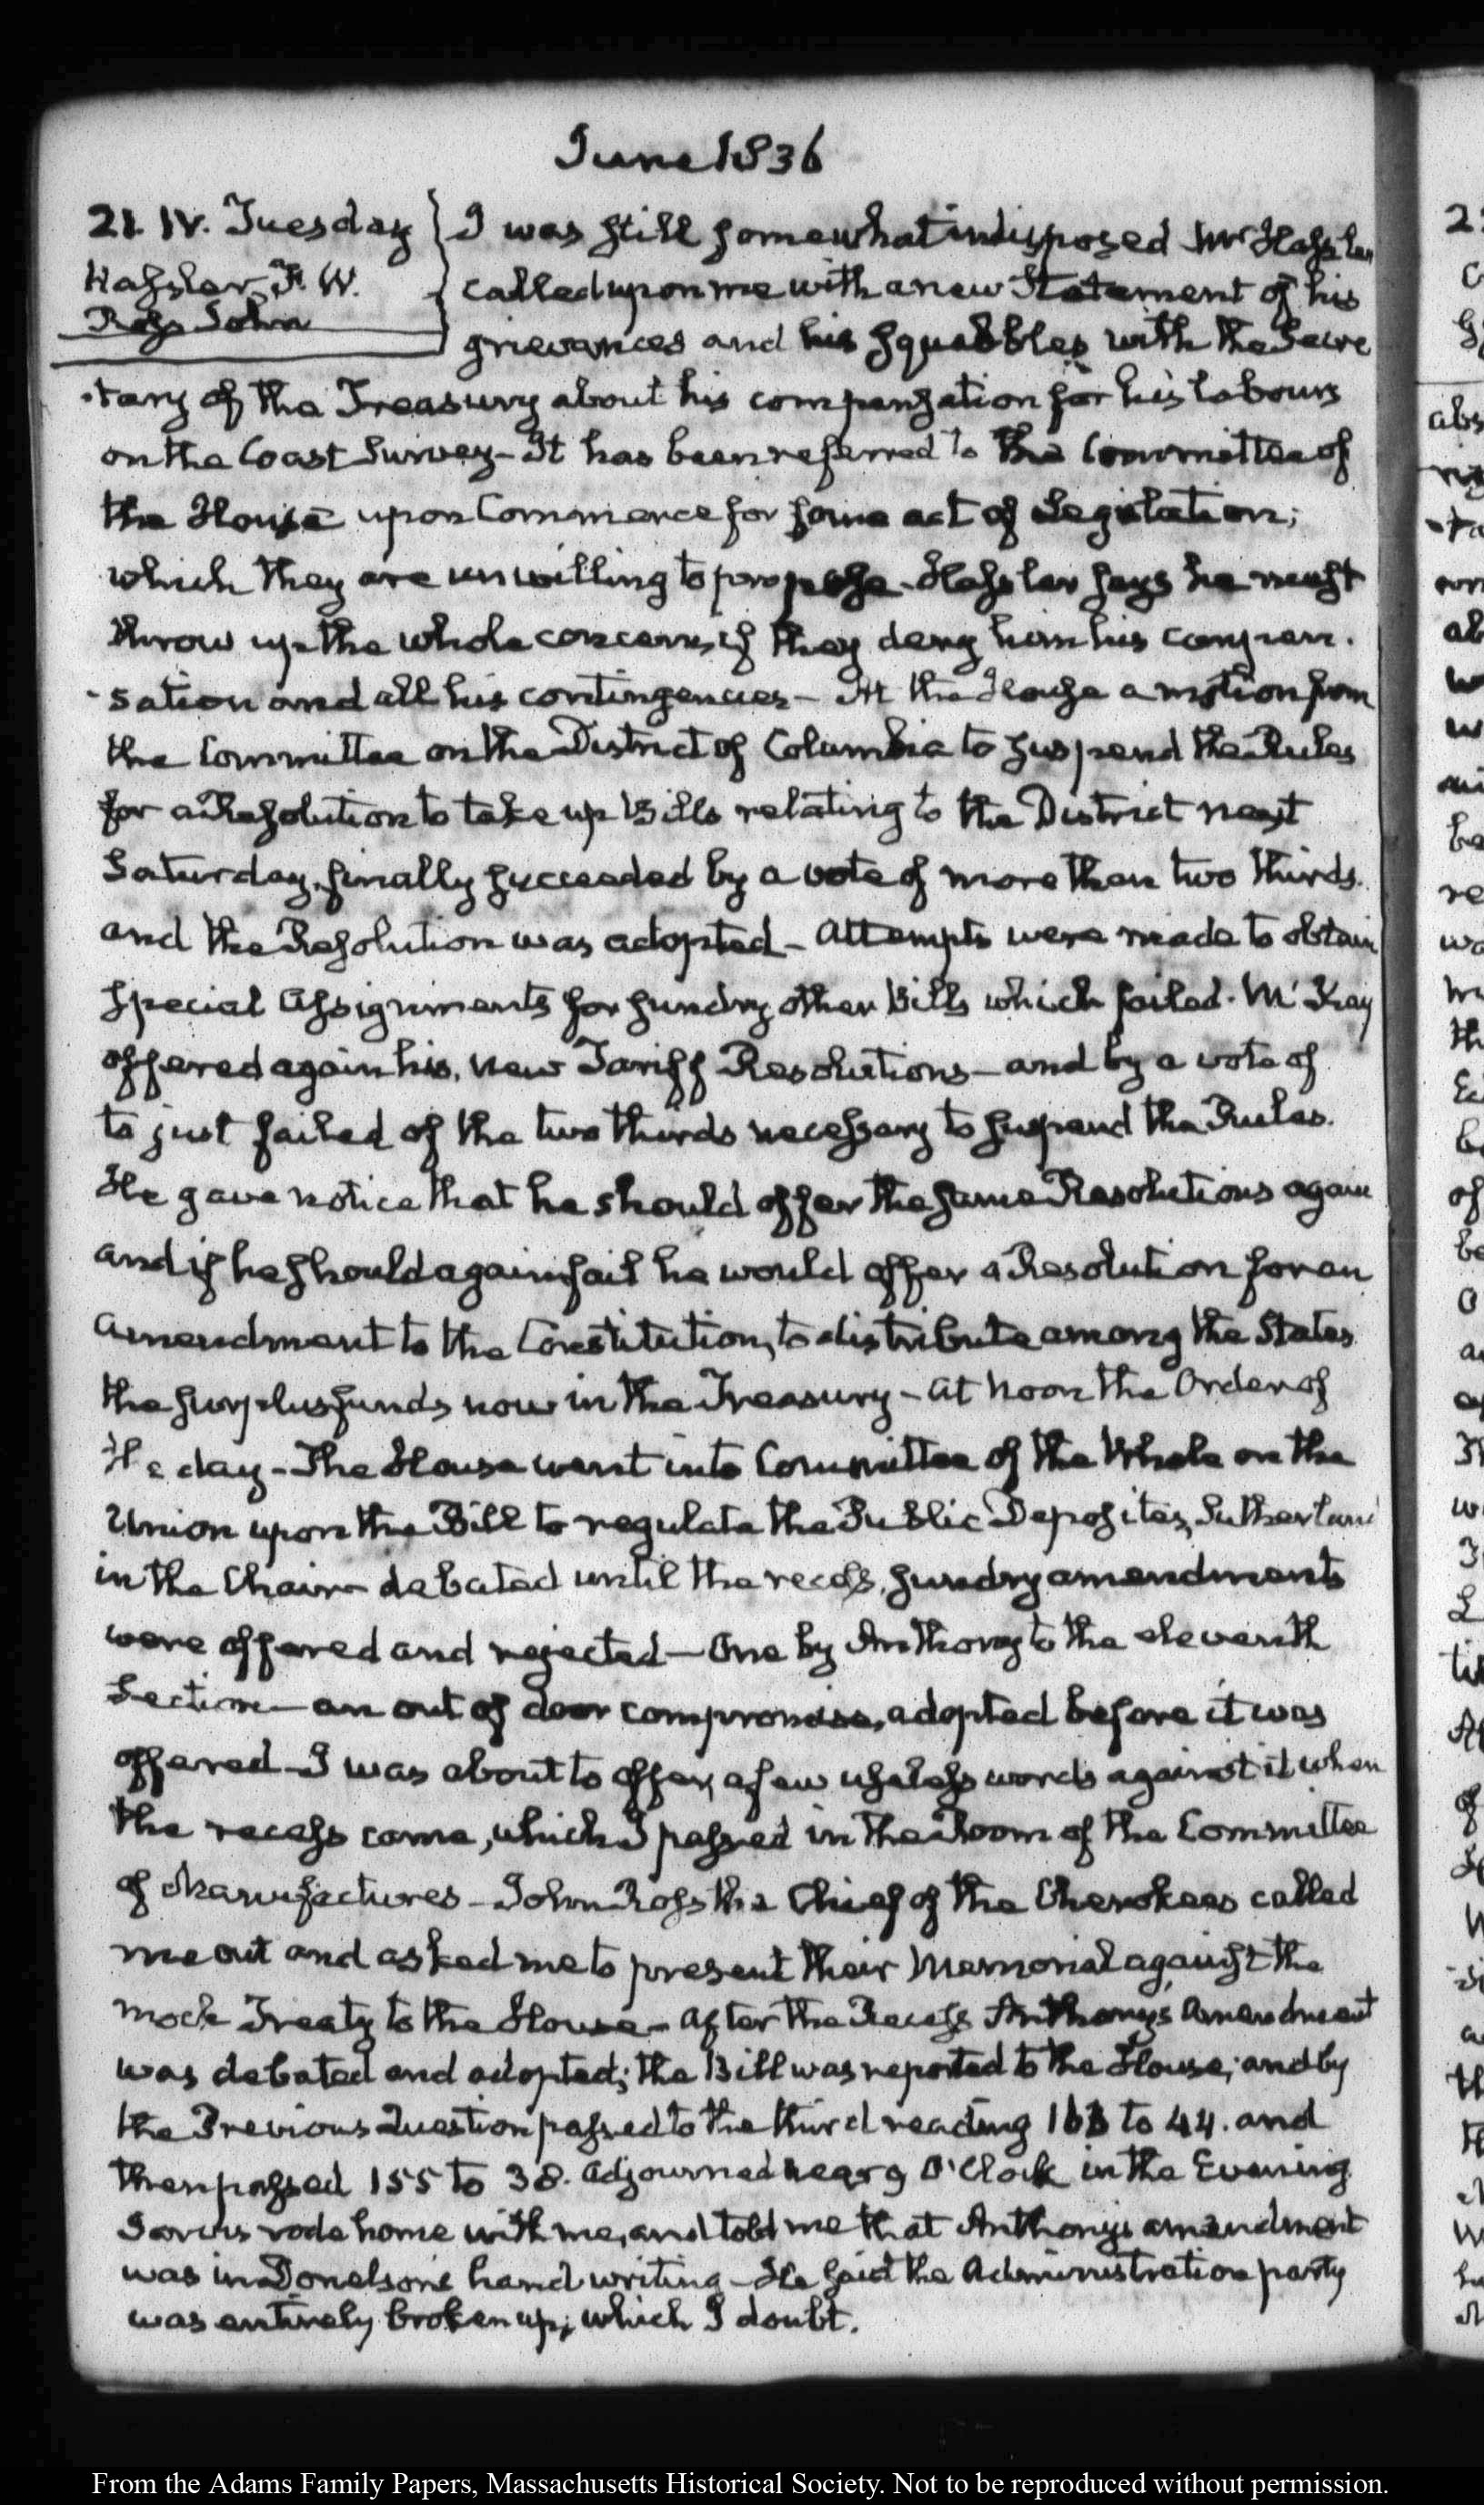 June 1836
21. IV. Tuesday
Hassler, F. W.
Ross John
I was still somewhat indisposed Mr Hassler
called upon me with a new Statement of his
grievances and his squabbles with the Secre
-tary of the Treasury about his compensation for his labours
on the Coast Survey- It has been referred to the Committee of
the House upon Commerce for some act of Legislation;
which they are unwilling to propose- Hassler says he must
throw up the whole concern, if they deny him his compen-
-sation and all his contingencies- At the House a motion from
the Committee on the District of Columbia to suspend the Rules
for a Resolution to take up Bills relating to the District next
Saturday, finally succeeded by a vote of more than two thirds.
and the Resolution was adopted- Attempts were made to obtain
special Assignments for sundry other Bills which failed. M'Kay
offered again his, new Tariff Resolutions- and by a vote of
to just failed of the two thirds necessary to suspend the Rules.
He gave notice that he should offer the same Resolutions again
and if he should again fail he would offer a Resolution for an
amendment to the Constitution, to distribute among the States
the surplus funds now in the Treasury- At Noon the Order of
the day- The House went into Committee of the Whole on the
Union upon the Bill to regulate the Public Deposites, Sutherland
in the Chair- debated until the recess, sundry amendments
were offered and rejected- One by Anthony to the eleventh
Section- an out of door compromise, adopted before it was
offered- I was about to offer, a few useless words against it when
the recess came, which I passed in the Room of the Committee
of Manufactures- John Ross the Chief of the Cherokees called
me out and asked me to present their Memorial against the
mock Treaty to the House- After the Recess Anthony's Amendment
was debated and adopted; the Bill was reported to the House; and by
the Previous Question passed to the third reading 163 to 44. and
then passed 155 to 38. Adjourned near 9 O'Clock in the Evening
Jarvis rode home with me, and told me that Anthony's amendment
was in Donelson's hand writing- He said the Administration party
was entirely broken up; which I doubt.
From the Adams Family Papers, Massachusetts Historical Society. Not to be reproduced without permission.